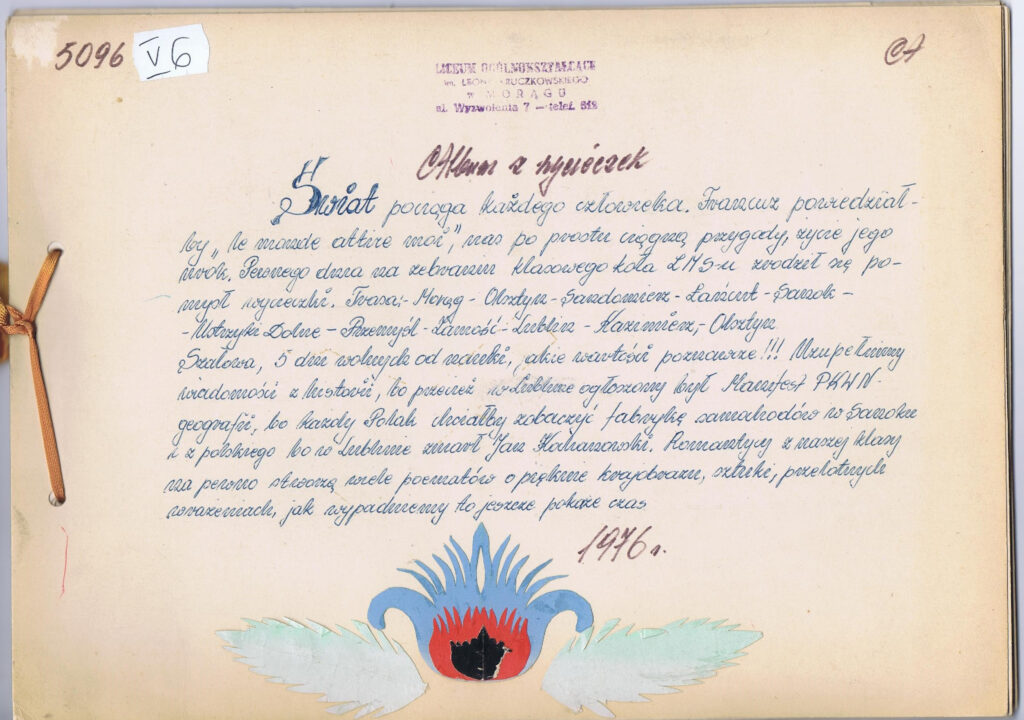 5096 V6 CA
LICEUM OGÓLNOKSZTAŁCĄCE
im. LEONA KRUCZKOWSKIEGO
w MORĄGU
ul. Wyzwolenia 7 — telef. 512
Album z wycieczek
Świat pociąga każdego człowieka. Francuz powiedział-
by „le monde attire moi", nas po prostu ciągną przygody, życie jego
urok. Pewnego dnia na zebraniu klasowego koła ZMS-u zrodził się po-
mysł wycieczki. Trasa:- Morąg - Olsztyn - Sandomierz - Łańcut - Sanok -
- Ustrzyki Dolne - Przemyśl - Zamość - Lublin - Kazimierz,- Olsztyn
Szałowa, 5 dni wolnych od nauki, jakie wartości poznawcze!!! Uzupełnimy
wiadomości z historii, bo przecież w Lublinie ogłoszony był Manifest PKWN.
geografii, bo każdy Polak chciałby zobaczyć fabrykę samochodów w Sanoku
i z polskiego bo w Lublinie zmarł Jan Kochanowski. Romantycy z naszej klasy
na pewno stworzą wiele poematów o pięknie krajobrazu, sztuki, przelotnych
wrażeniach, jak wypadniemy to jeszcze pokaże czas
1976 r.